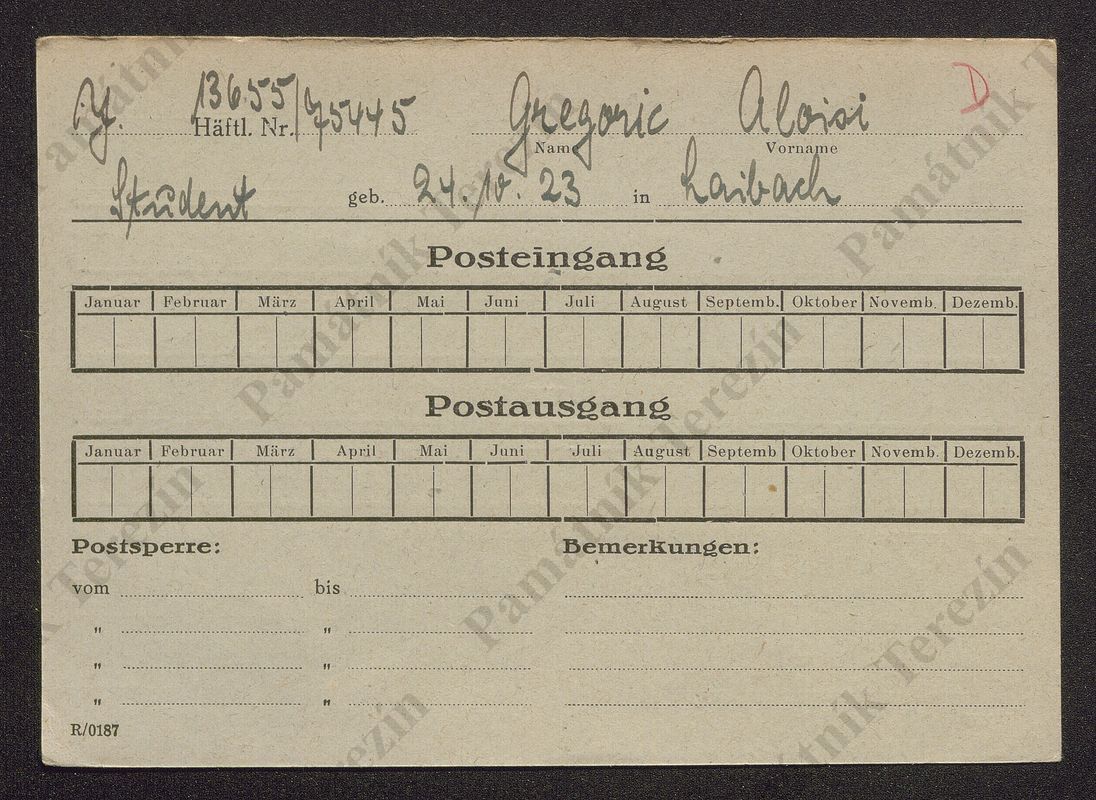 13655/75445 Gregoric Aloisi D
Häftl. Nr. Name Vorname
Student geb. 24.10.23 in Laibach
Posteingang
Januar Februar März April Mai Juni Juli August Septemb. Oktober Novemb. Dezemb.
Postausgang
Januar Februar März April Mai Juni Juli August Septemb Oktober Novemb. Dezemb.
Postsperre: Bemerkungen:
vom bis
" "
" "
" "
R/0187
Památník Terezín